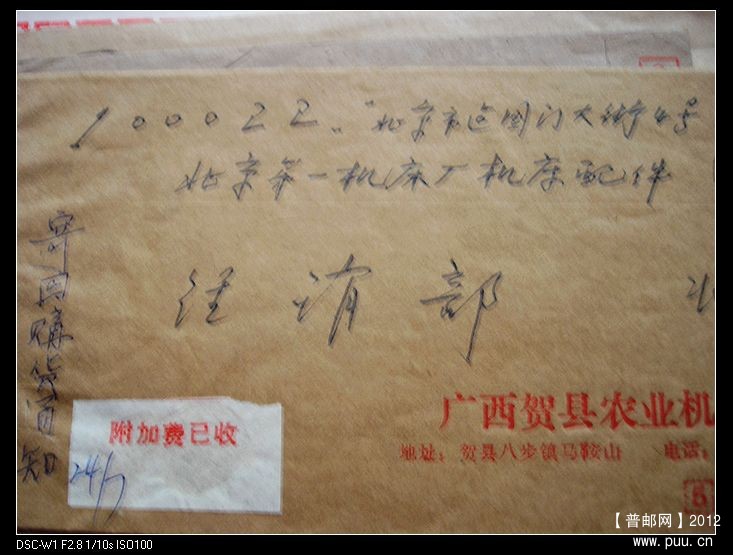 100022 北京市建国门大街4号
北京第一机床厂机床配件
经销部
寄回购货通知
附加费已收
24/7
广西贺县农业机
地址:贺县八步镇马鞍山 电话:
【普邮网】2012
www.puu.cn
DSC-W1 F2.8 1/10s ISO100